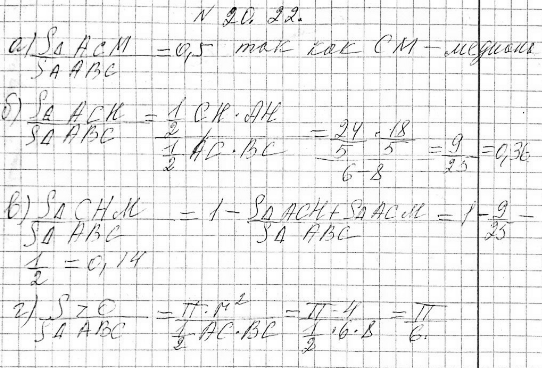 N 20. 22.
а) S△ ACM / S△ ABC = 0,5 так как CM – медиана
б) S△ ACH / S△ ABC = 1/2 CH · AH / 1/2 AC · BC = 24/5 · 18/5 / 6-8 = 9/25 = 0,36
в) S△ CHM / S△ ABC = 1 - S△ ACH + S△ ACM / S△ ABC = 1 - 9/25 -
1/2 = 0,14
г) S / S△ ABC = π · r² / 1/2 · AC · BC = π · 4 / 1/2 · 6 · 8 = π / 6.